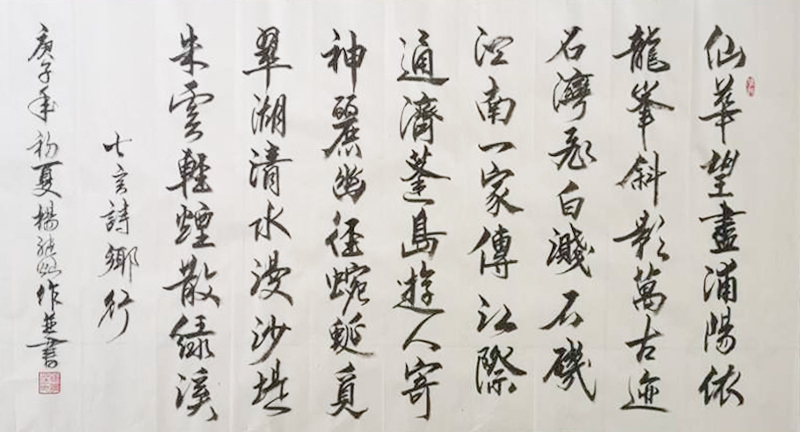 仙華望盡浦陽依
龍峯斜影萬古迹
名灣飛白濺石磯
江南一家傳江際
通濟蓬島遊人寄
神麗幽徑蜿蜒覓
翠湖清水漫沙堤
朱雲輕煙散綠溪
七言詩鄉行
庚子年初夏楊作並書